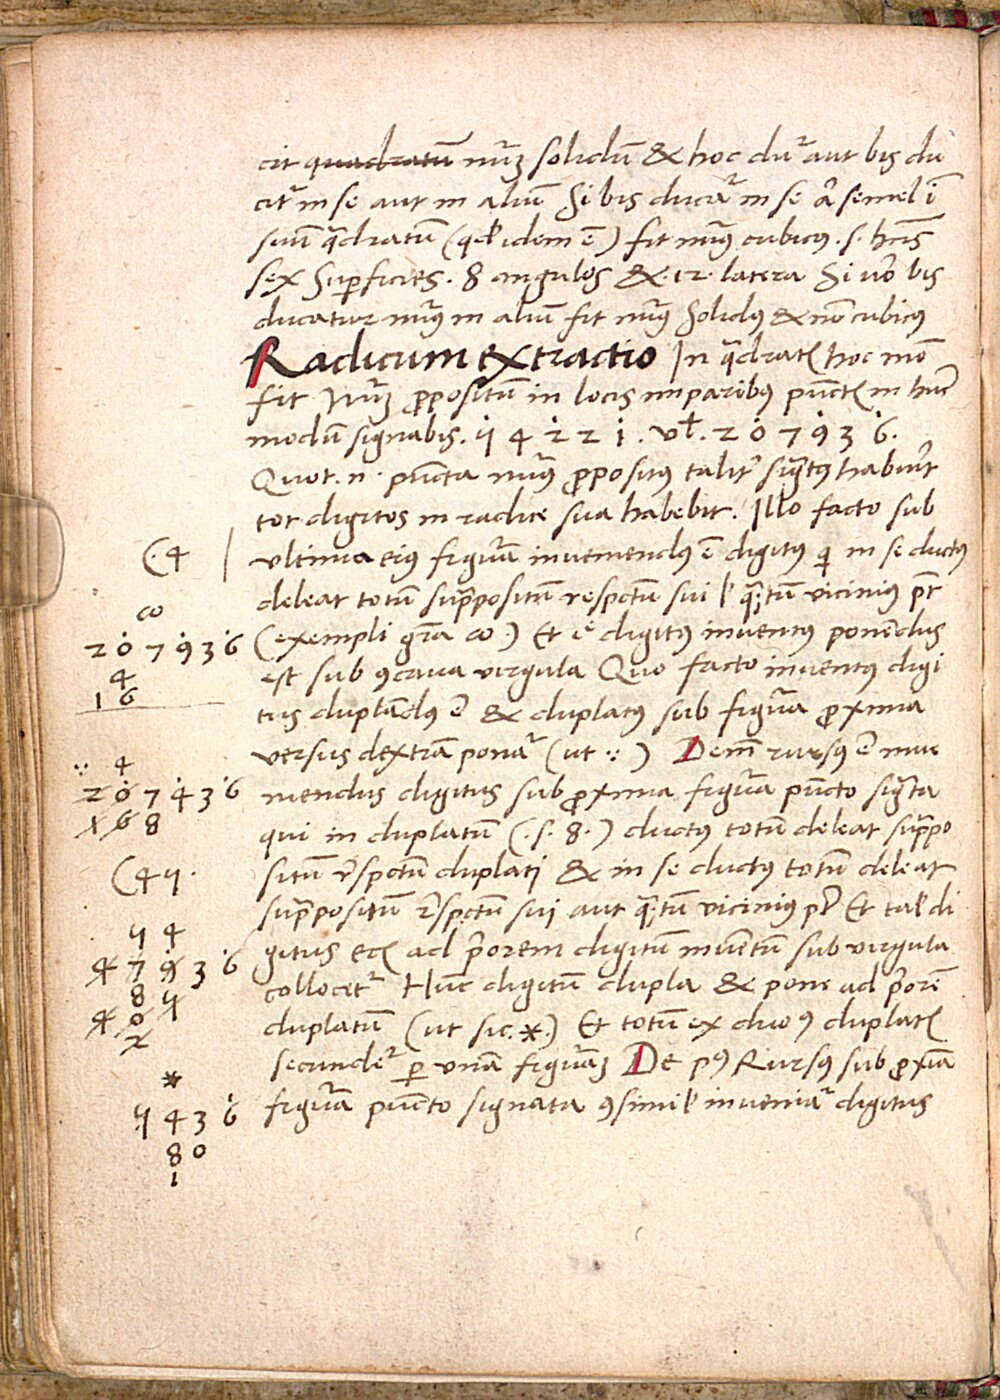 cit quadratū nūꝫ solidū & hoc duʳ aut bis du
citʳ in se aut in aliū Si bis ducaʳ in se & semel ī
suū q̄dratū (qđ idem ē) fit nūꝰ cubicꝰ .s. hn̄s
sex Suꝑficies . 8 angulos & .12. latera Si uō bis
ducatur nūꝰ in aliū fit nūꝰ Solidꝰ & nō cubicꝰ
Radicum extractio In q̄dratꝭ hoc mō
fit Nūꝫ ꝓpositū in locis imparibꝰ pūctꝭ in hūc
modū signabis. 5 4 2 2 1 . vł. 2 0 7 9 3 6.
Quot .n. pūcta nūꝰ ꝓpositus talitʳ sig̃tꝰ habūit
tot digitos in radice sua habebit. Illo facto sub
ultima eiꝰ figura inueniendꝰ ē digitꝰ qi in se ductꝰ
deleat totū supͣpositū respctū sui l q̃ꝫtū vicinius pt
(exempli gr̄a ∞.) Et iͤ digitꝰ inuentꝰ ponēdus
est sub ꝯcaua virgula Quo facto inuentꝰ digi
tus duplādꝰ ē & duplatꝰ sub figura ꝓxima
versus dextrā ponaʳ (ut ∵ ) Deīn rursꝰ ē inue
niendus digitus sub ꝓxima figura pūcto sig̃ta
qui in duplatū (.s. 8.) ductꝰ totū deleat supͣpo
situ rspctū duplati & in se ductꝰ totū deleat
supͣpositū rspctū sui aut q̃ꝫtū vicinius pt Et tal di
gitus etꝭ ad p̄orem digitū inuētū sub virgula
collocetʳ Hūc digitū dupla & pone ad p̄orē
duplatū (ut sic.*.) Et totū ex duoꝰ duplatꝭ
secundeʳ ꝑ unā figuraꝫ De pꝰ Rursꝰ sub ꝓxīa
figura pūcto signata ꝯsimil inueniaʳ digitus
(.4
∞
2 0 7 9 3 6
4
1 6
∵ 4
2 0 7 9 3 6
1 6 8
(4 5.
5 4
4 7 9 3 6
8 5
4 0
2
*
5 4 3 6
8 0
1